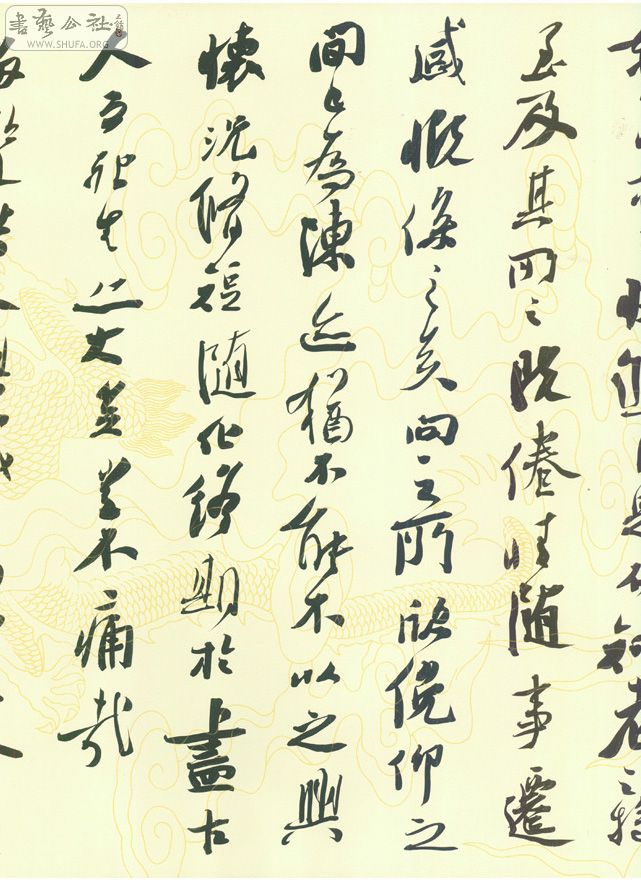 書藝公社
WWW.SHUFA.ORG
至及其所之既倦情随事遷
感慨係之矣向之所欣俛仰之
間已為陳迹猶不能不以之興
懷況脩短随化終期於盡古
人云死生亦大矣豈不痛哉